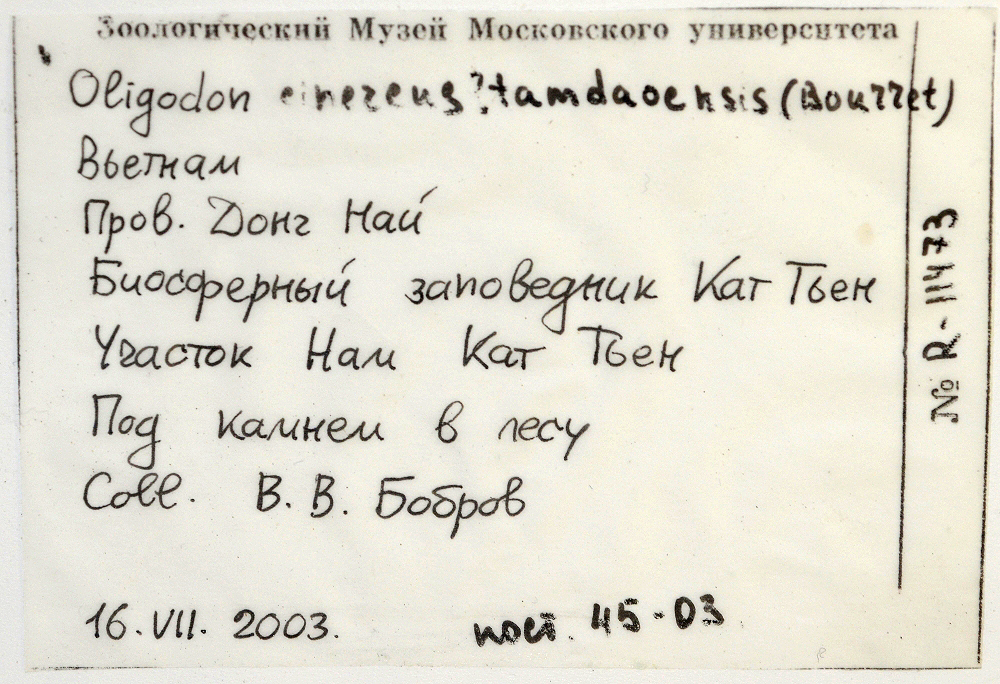 Зоологический Музей Московского университета
Oligodon cinereus? tamdaoensis (Bourret)
Вьетнам
Пров. Донг Най
Биосферный заповедник Кат Тьен
Участок Нам Кат Тьен
Под камнем в лесу
Coll. В. В. Бобров
16.VII. 2003. пост. 45-03
№ R-11473